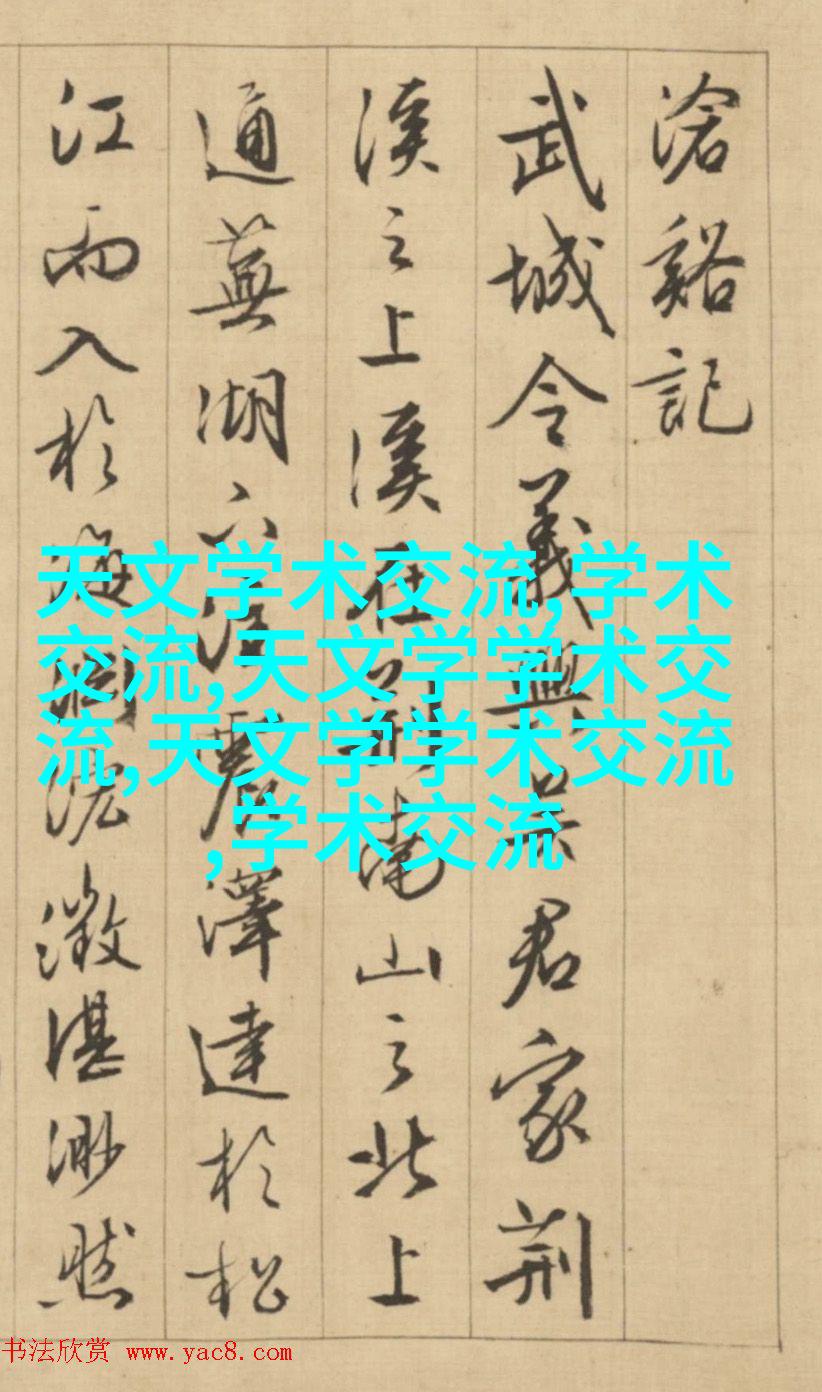 滄谿記
武城令義興吳君家荆
溪之上溪在荆南山之北上
通蕪湖下震澤達於松
江而入於海澂湛渺然
天文学术交流,学术
交流,天文学学术交
流,天文学学术交流
,学术交流
书法欣赏 www.yac8.com